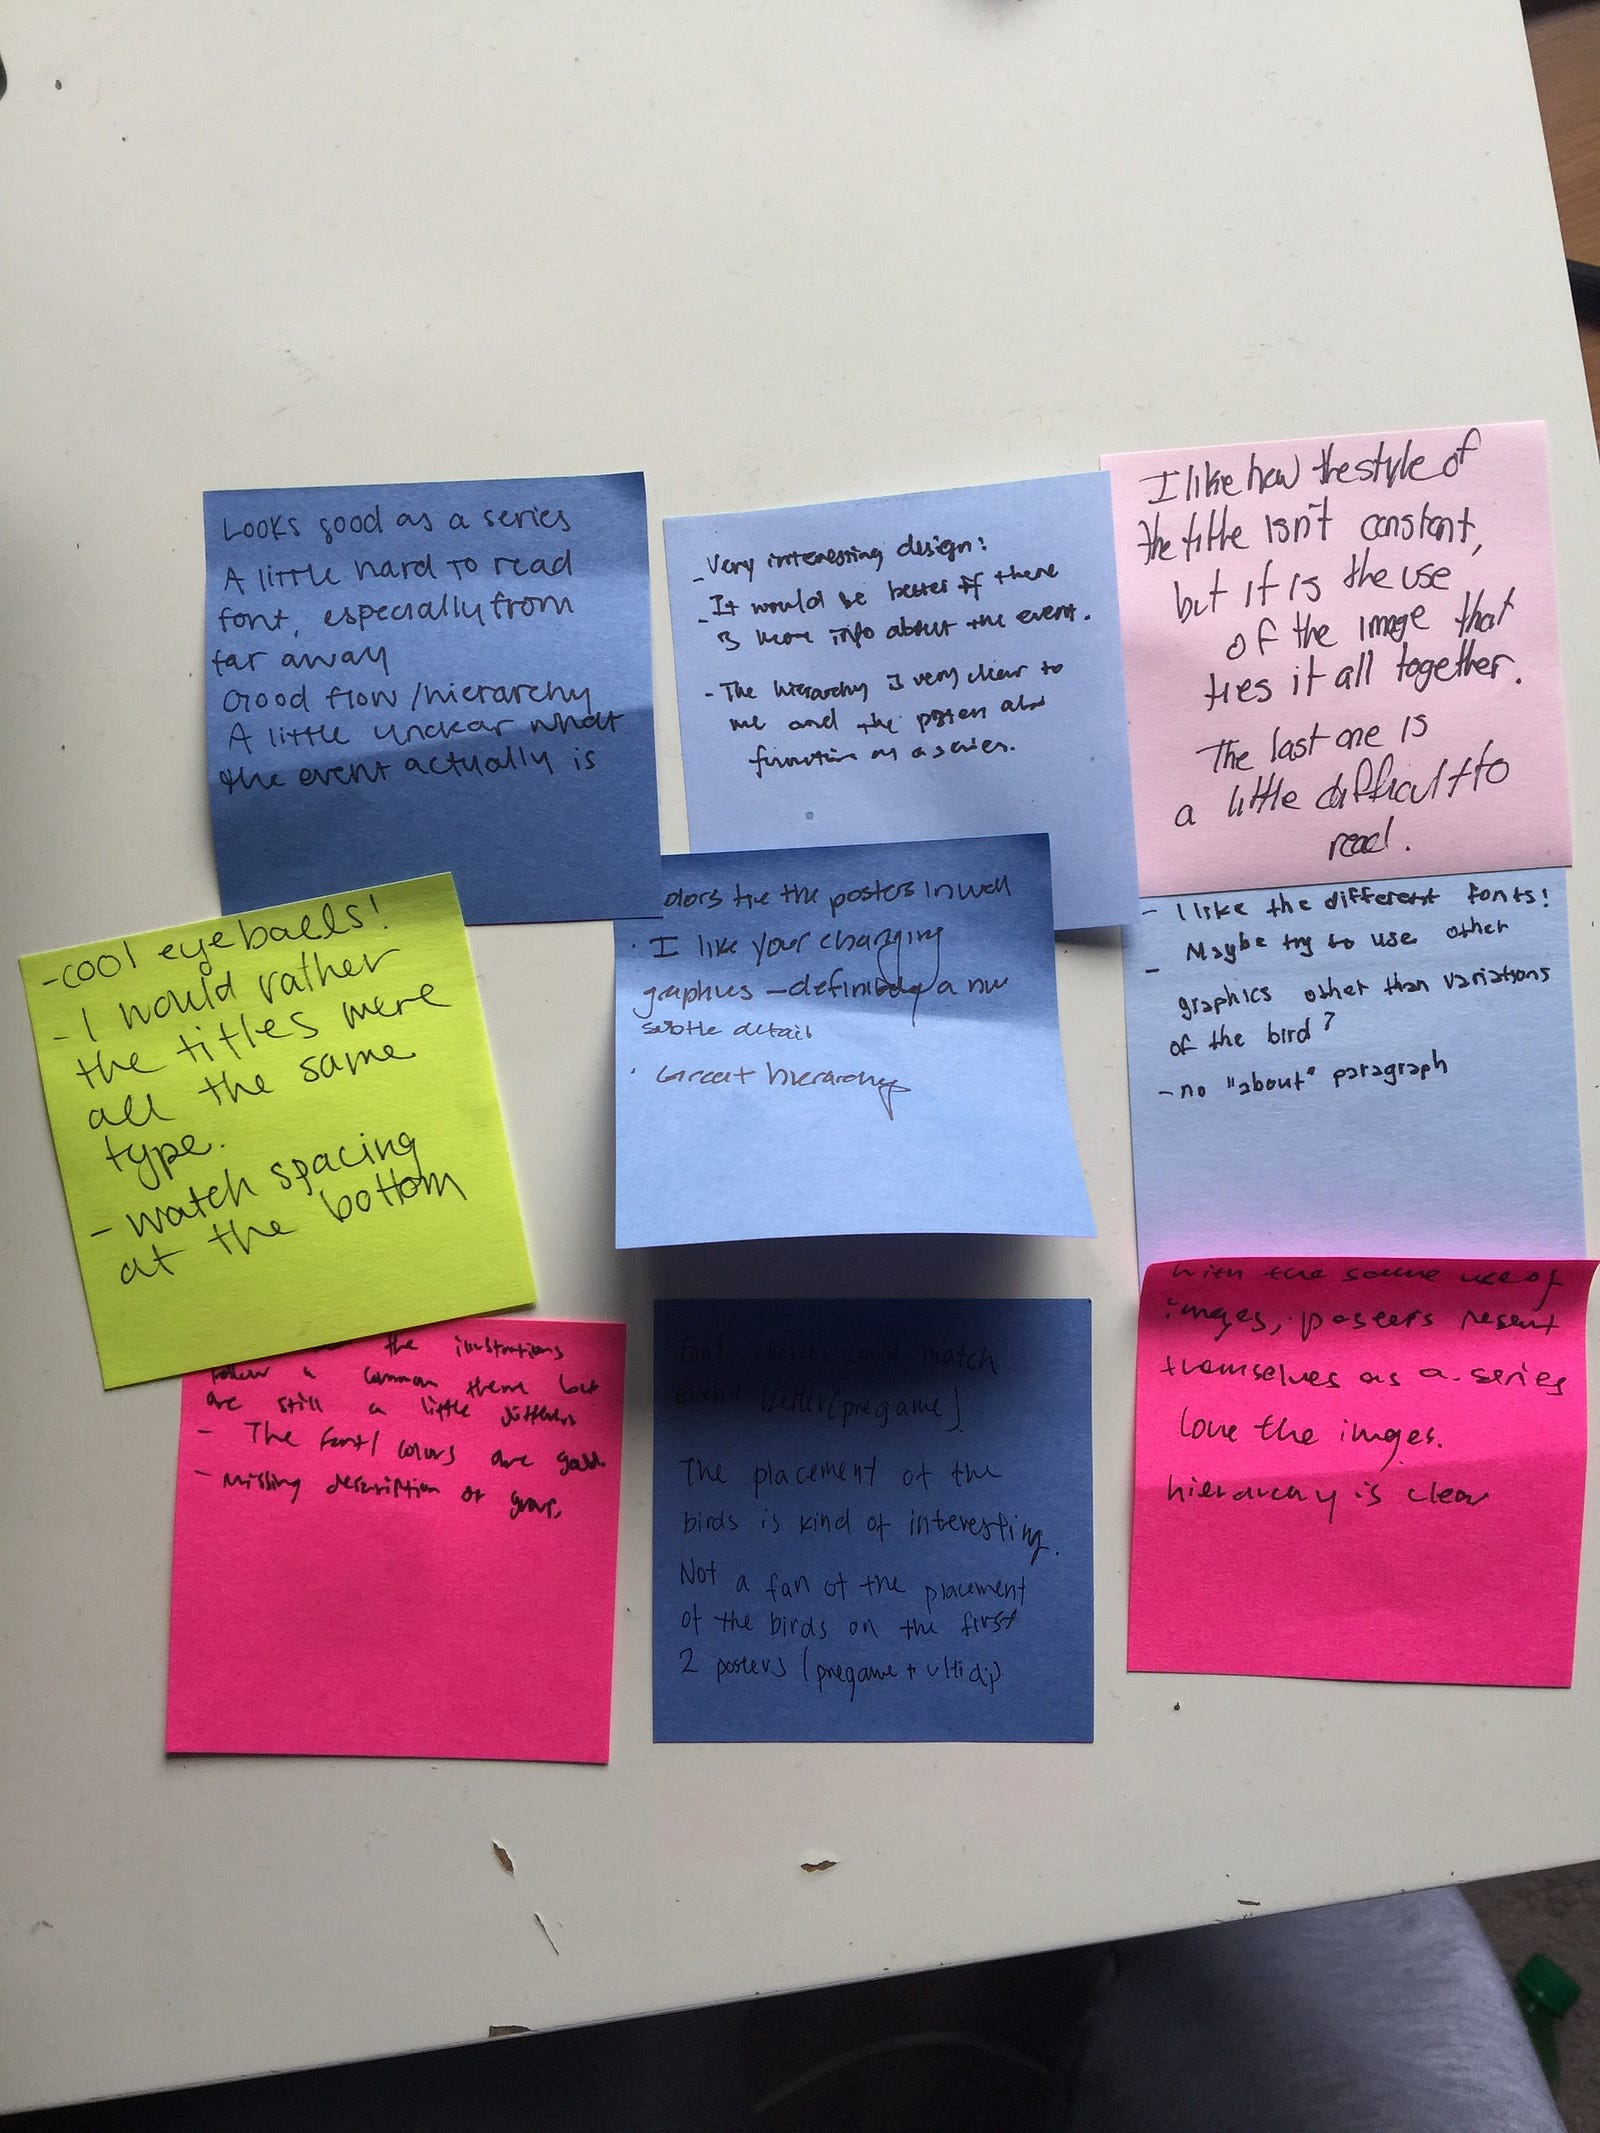 Looks good as a series
A little hard to read
font, especially from
far away
Good flow/hierarchy
A little unclear what
the event actually is
- Very interesting design!
- It would be better if there
is more info about the event.
- The hierarchy is very clear to
me and the posters also
function as a series.
I like how the style of
the title isn't constant,
but it is the use
of the image that
ties it all together.
The last one is
a little difficult to
read.
- cool eyeballs!
- I would rather
the titles were
all the same
type.
- watch spacing
at the bottom
olors tie the posters in well
· I like your changing
graphics - definitely a
subtle detail
· Great hierarchy
- I like the different fonts!
- Maybe try to use other
graphics other than variations
of the bird?
- no "about" paragraph
the illustrations
follow a common theme but
are still a little different
- The font/colors are good
- Missing description of group.
font choices could match
event better (pregame).
The placement of the
birds is kind of interesting.
Not a fan of the placement
of the birds on the first
2 posters (pregame +
with the same use of
images, posters present
themselves as a series
love the images.
hierarchy is clear